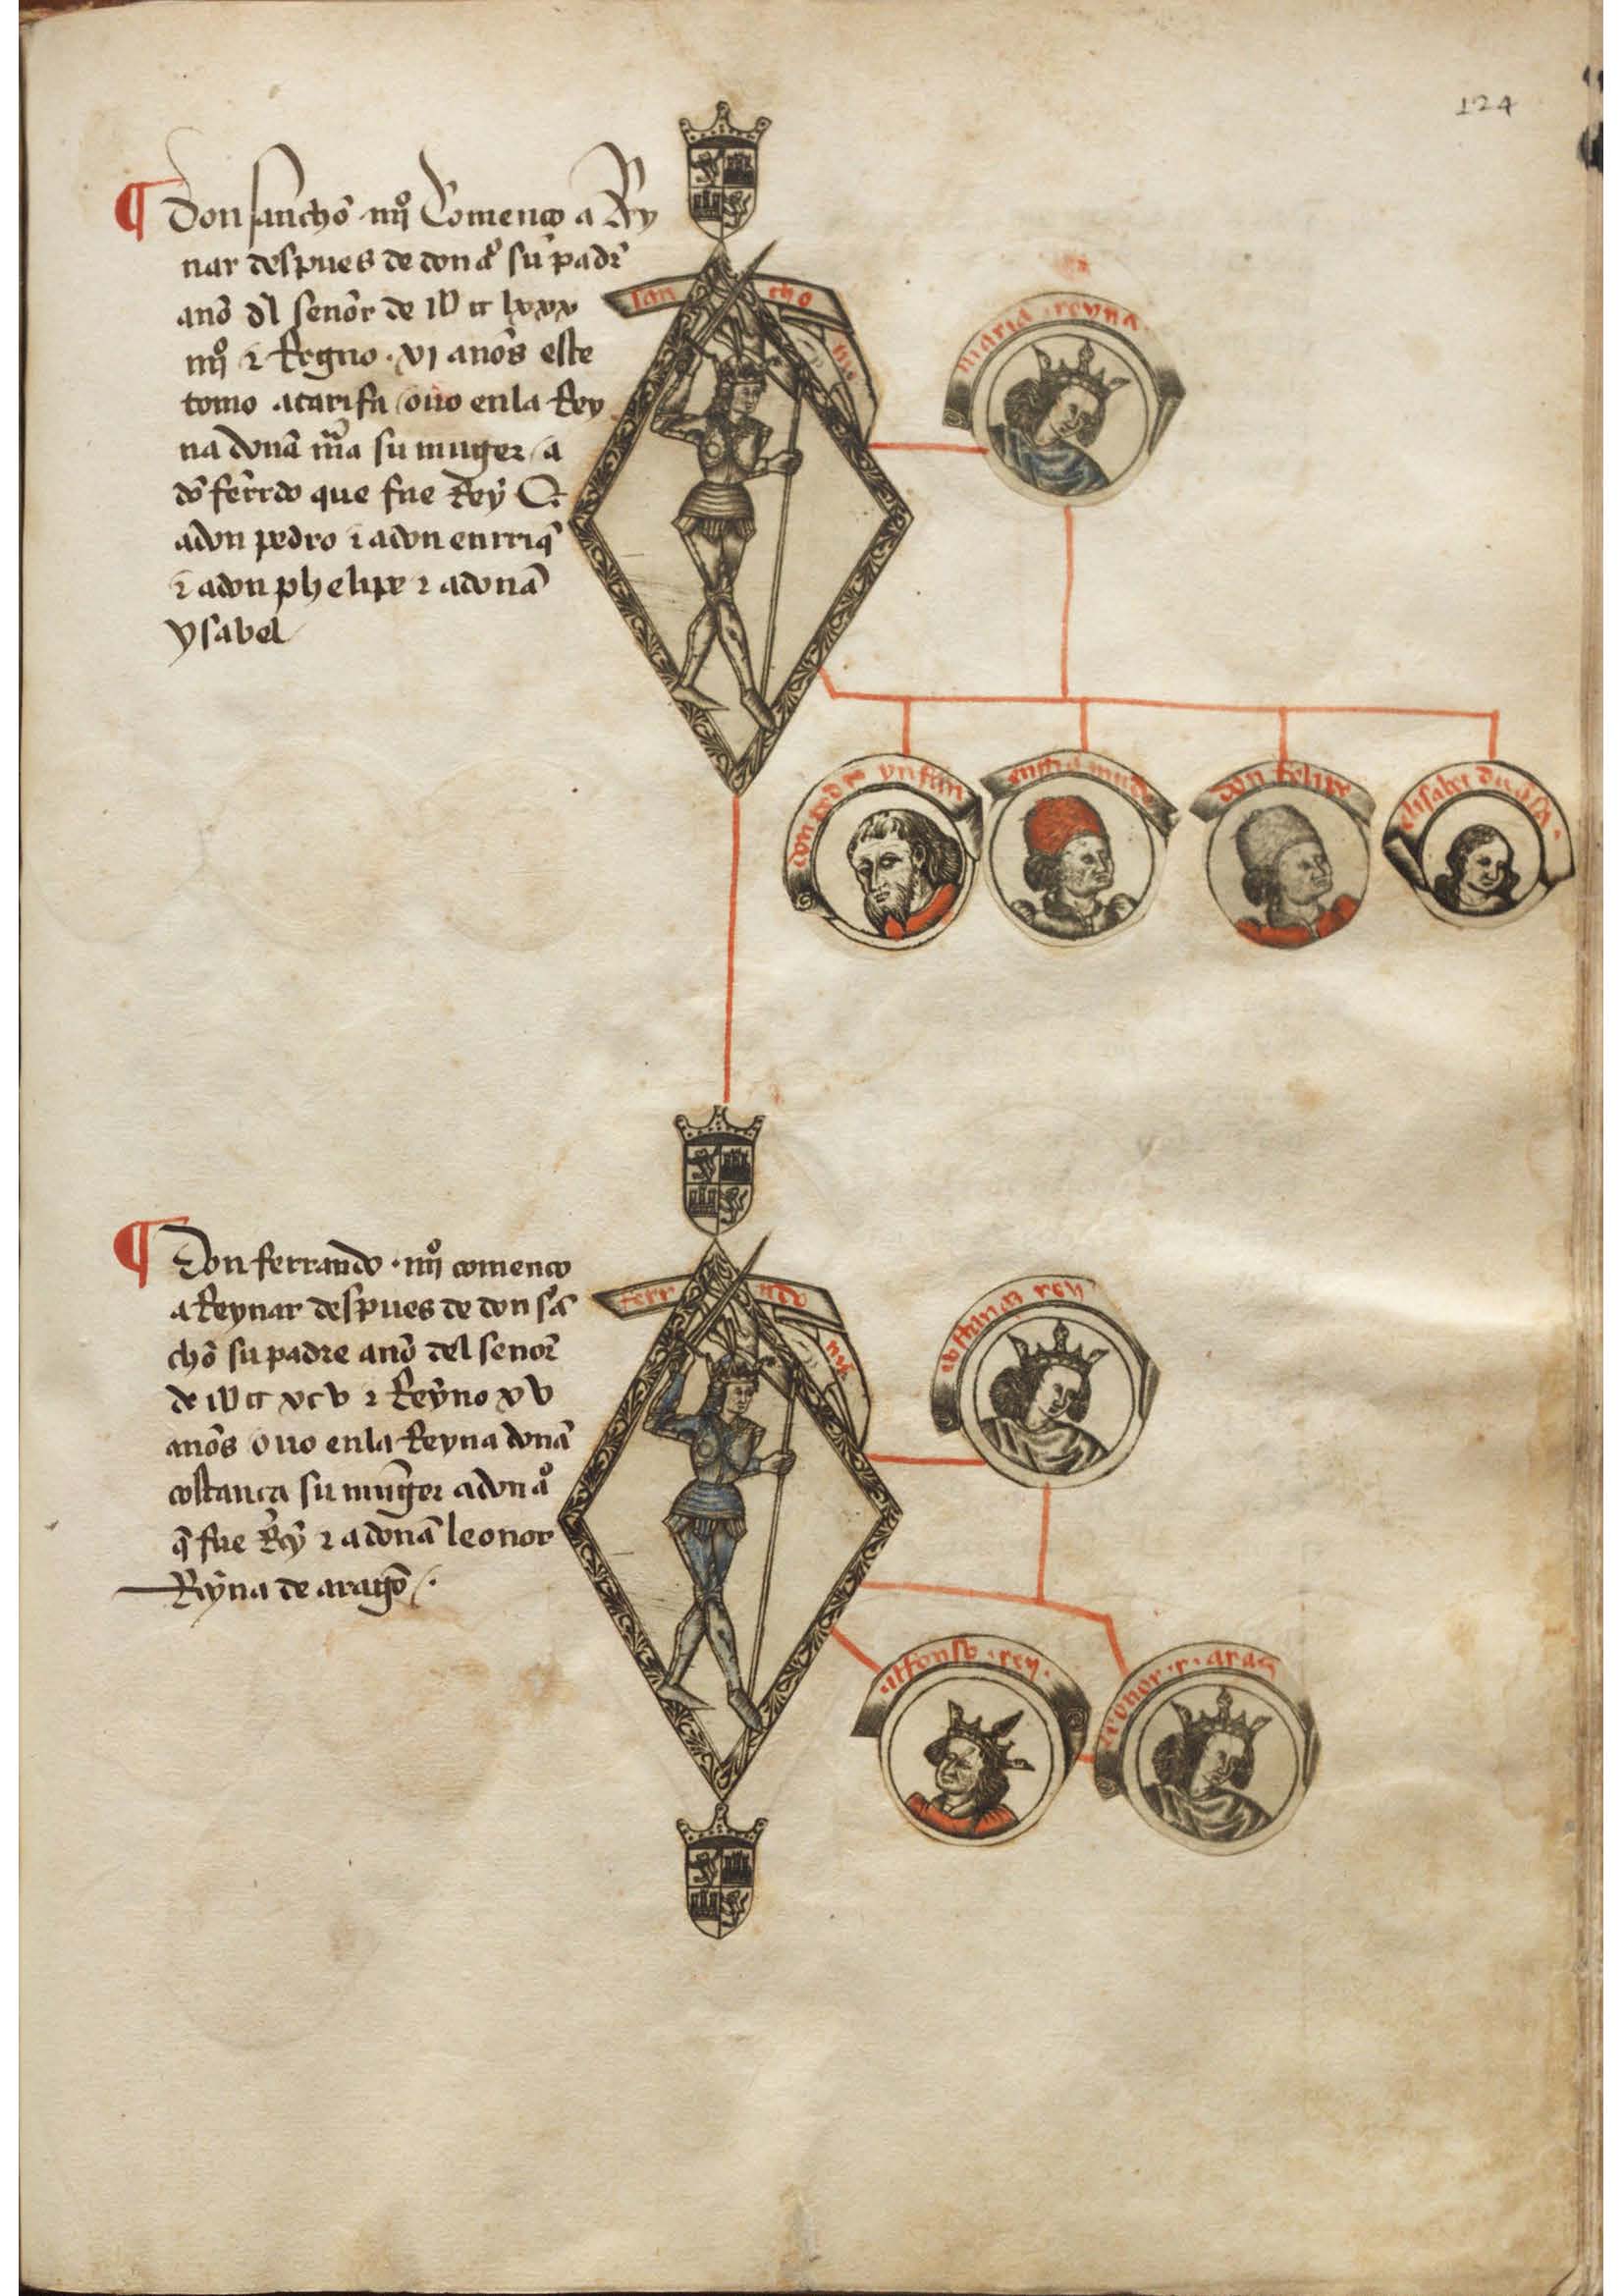 124
¶ Don sancho .iiijº Comenco a Rey
nar despues de don aº su padr̄
ano d'l senor de Mil cc lxxx
iiijº ⁊ Regno . vi anos este
tomo a tarifa ouo en la Rey
na dona mīa su muger a
dō ferrdo que fue Rey ⁊
a don pedro ⁊ a don enrriq̄
⁊ a don phelipe ⁊ a dona
ysabel
san cho iiij
maria . reyna .
don pedro ynfan
enrriq mudo
don felipe
elisabet
¶ Don ferrando . iiijº comenco
a Reynar despues de don sā
cho su padre ano del senor
de Mil cc xcv ⁊ Reyno xv
anos Ouo en la Reyna dona
costanca su muger a don aº
q̄ fue Rey ⁊ a dona leonor
Reyna de aragō .
ferr ndo iiij
costanza rey
alfonso . rey .
leonor . r . arag